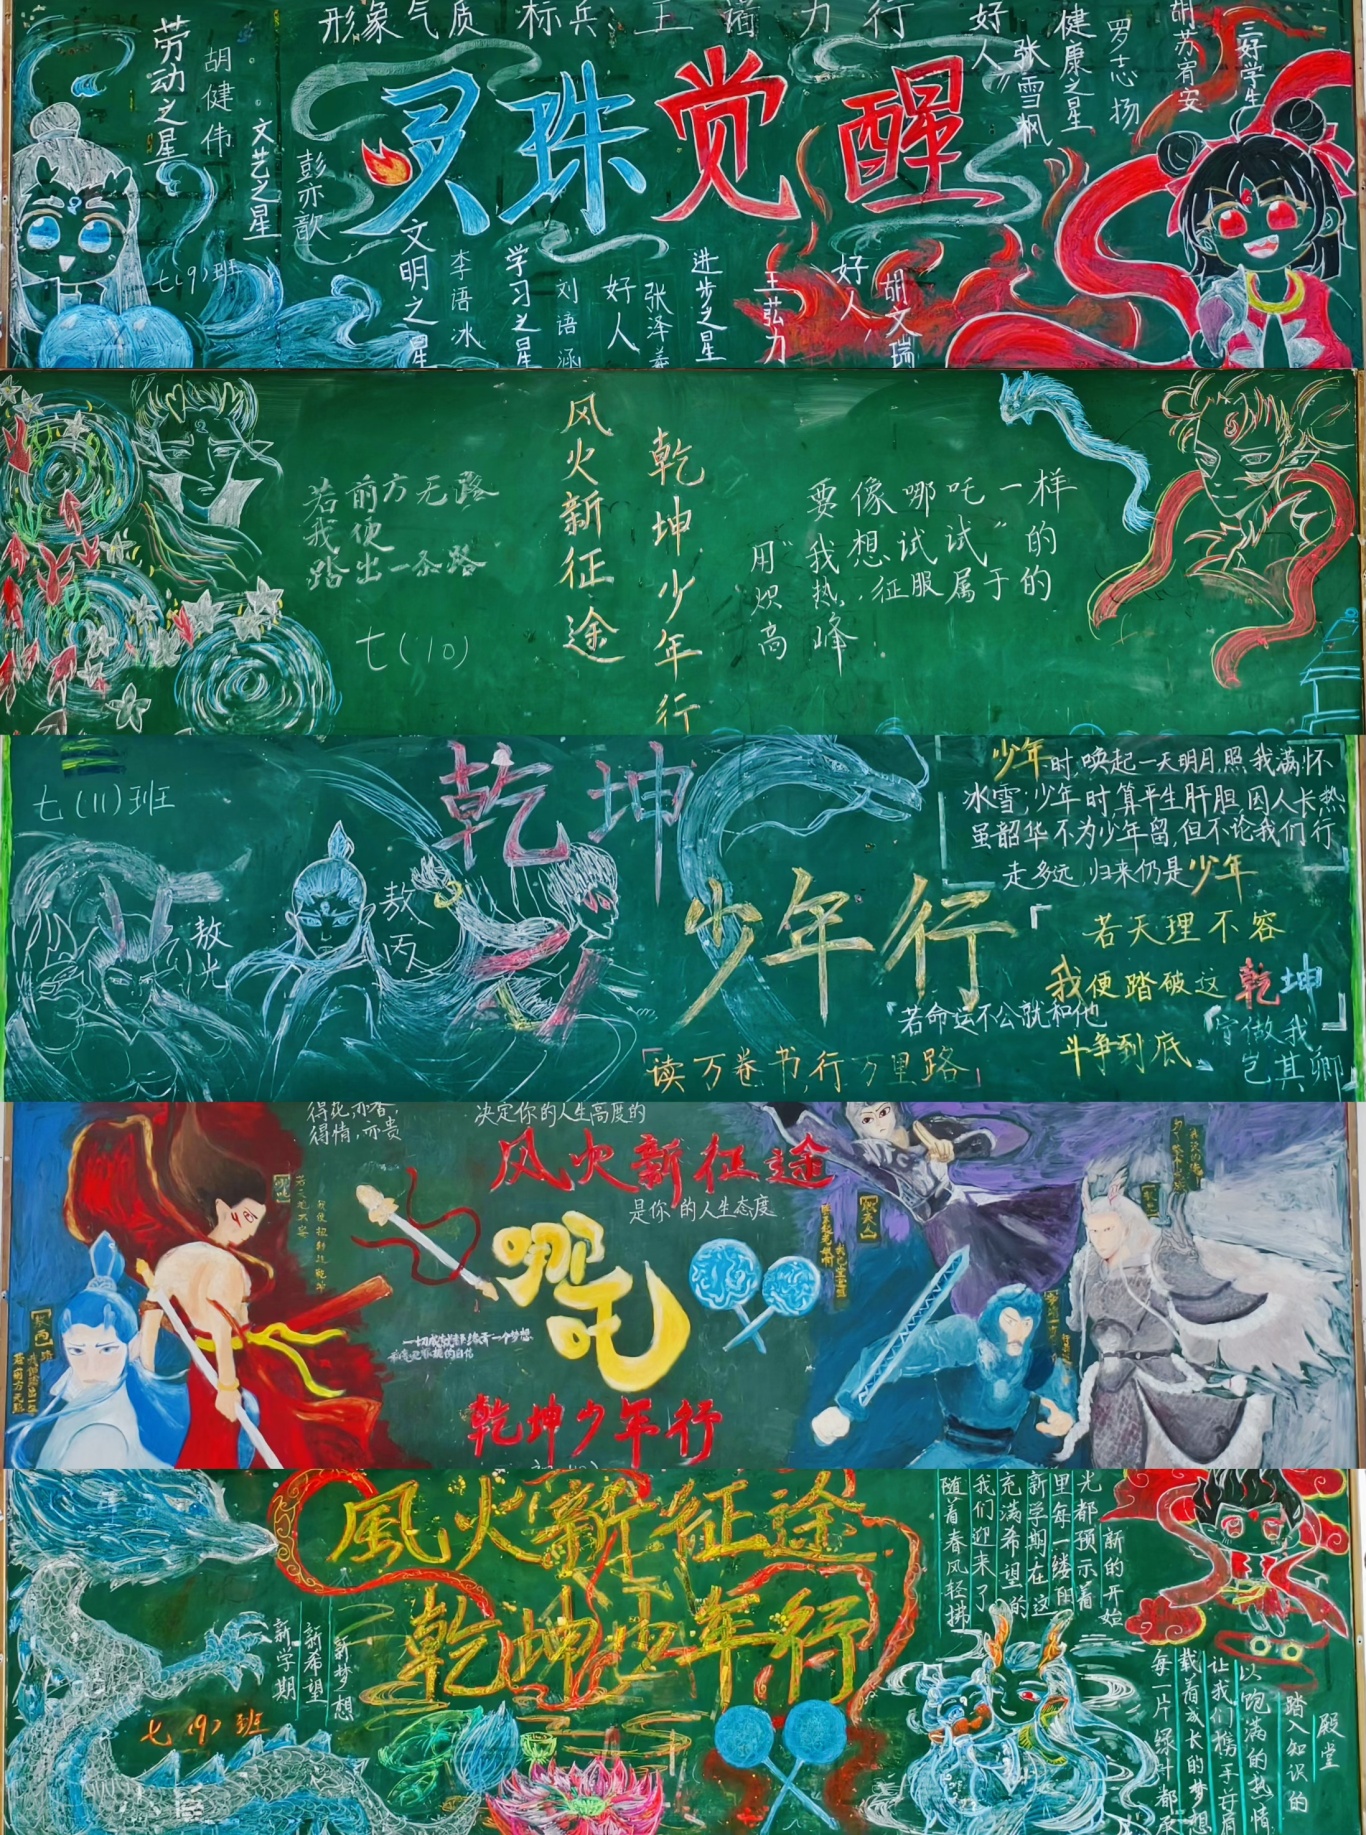 形象气质标兵 王 力行
灵珠觉醒
劳动之星
胡健伟
文艺之星
彭亦歆
七(9)班
文明之星
李语冰
学习之星
刘语涵
好人
张泽
进步之星
王弘力
好人
胡文瑞
好人
张雪枫
健康之星
罗志扬
胡苏宥安
三好学生
若前方无路
我便
踏出一条路
七(10)
风火新征途
乾坤少年行
要像哪吒一样
用“我想试试”的
炽热,征服属于的
高峰
七(11)班
乾坤
少年行
敖光
敖丙
少年时,唤起一天明月,照我满怀
冰雪;少年时,算平生肝胆,因人长热
虽韶华不为少年留,但不论我们行
走多远,归来仍是少年
若天理不容
我便踏破这乾坤
若命运不公就和他
斗争到底
宁做我
岂其卿
读万卷书,行万里路
得花,亦香,
得情,亦贵
决定你的人生高度的
风火新征途
是你的人生态度
哪吒
一切成就都缘于一个梦想
乾坤少年行
【敖丙】
若前方无路
我便踏出一条路
【哪吒】
風火新征途
乾坤少年行
新学期
新希望
新梦想
七(9)班
随着春风轻拂
我们迎来了
充满希望的
新学期在这
里每一缕阳
光都预示着
新的开始
每一片绿叶都承
载着成长的梦想
让我们携手并肩
以饱满的热情
踏入知识的
殿堂